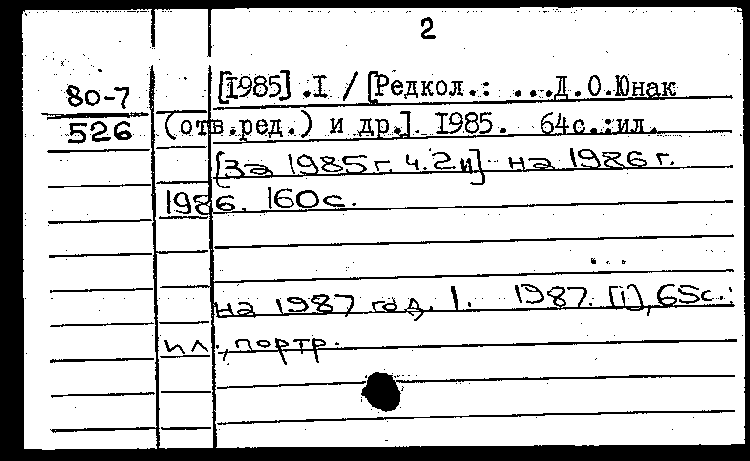 2
80-7
526
[1985].I / [Редкол.: ...Д.О.Юнак
(отв.ред.) и др.]. 1985. 64с.:ил.
[За 1985г. ч.2и] на 1986г.
1986. 160с.
...
на 1987 год. 1. 1987. [1], 65с.:
ил., портр.